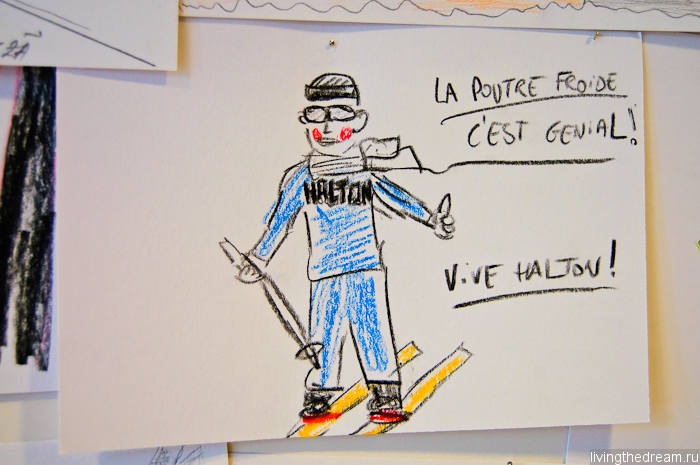 LA POUTRE FROIDE
C'EST GENIAL!
HALTON
VIVE HALTON!
livingthedream.ru